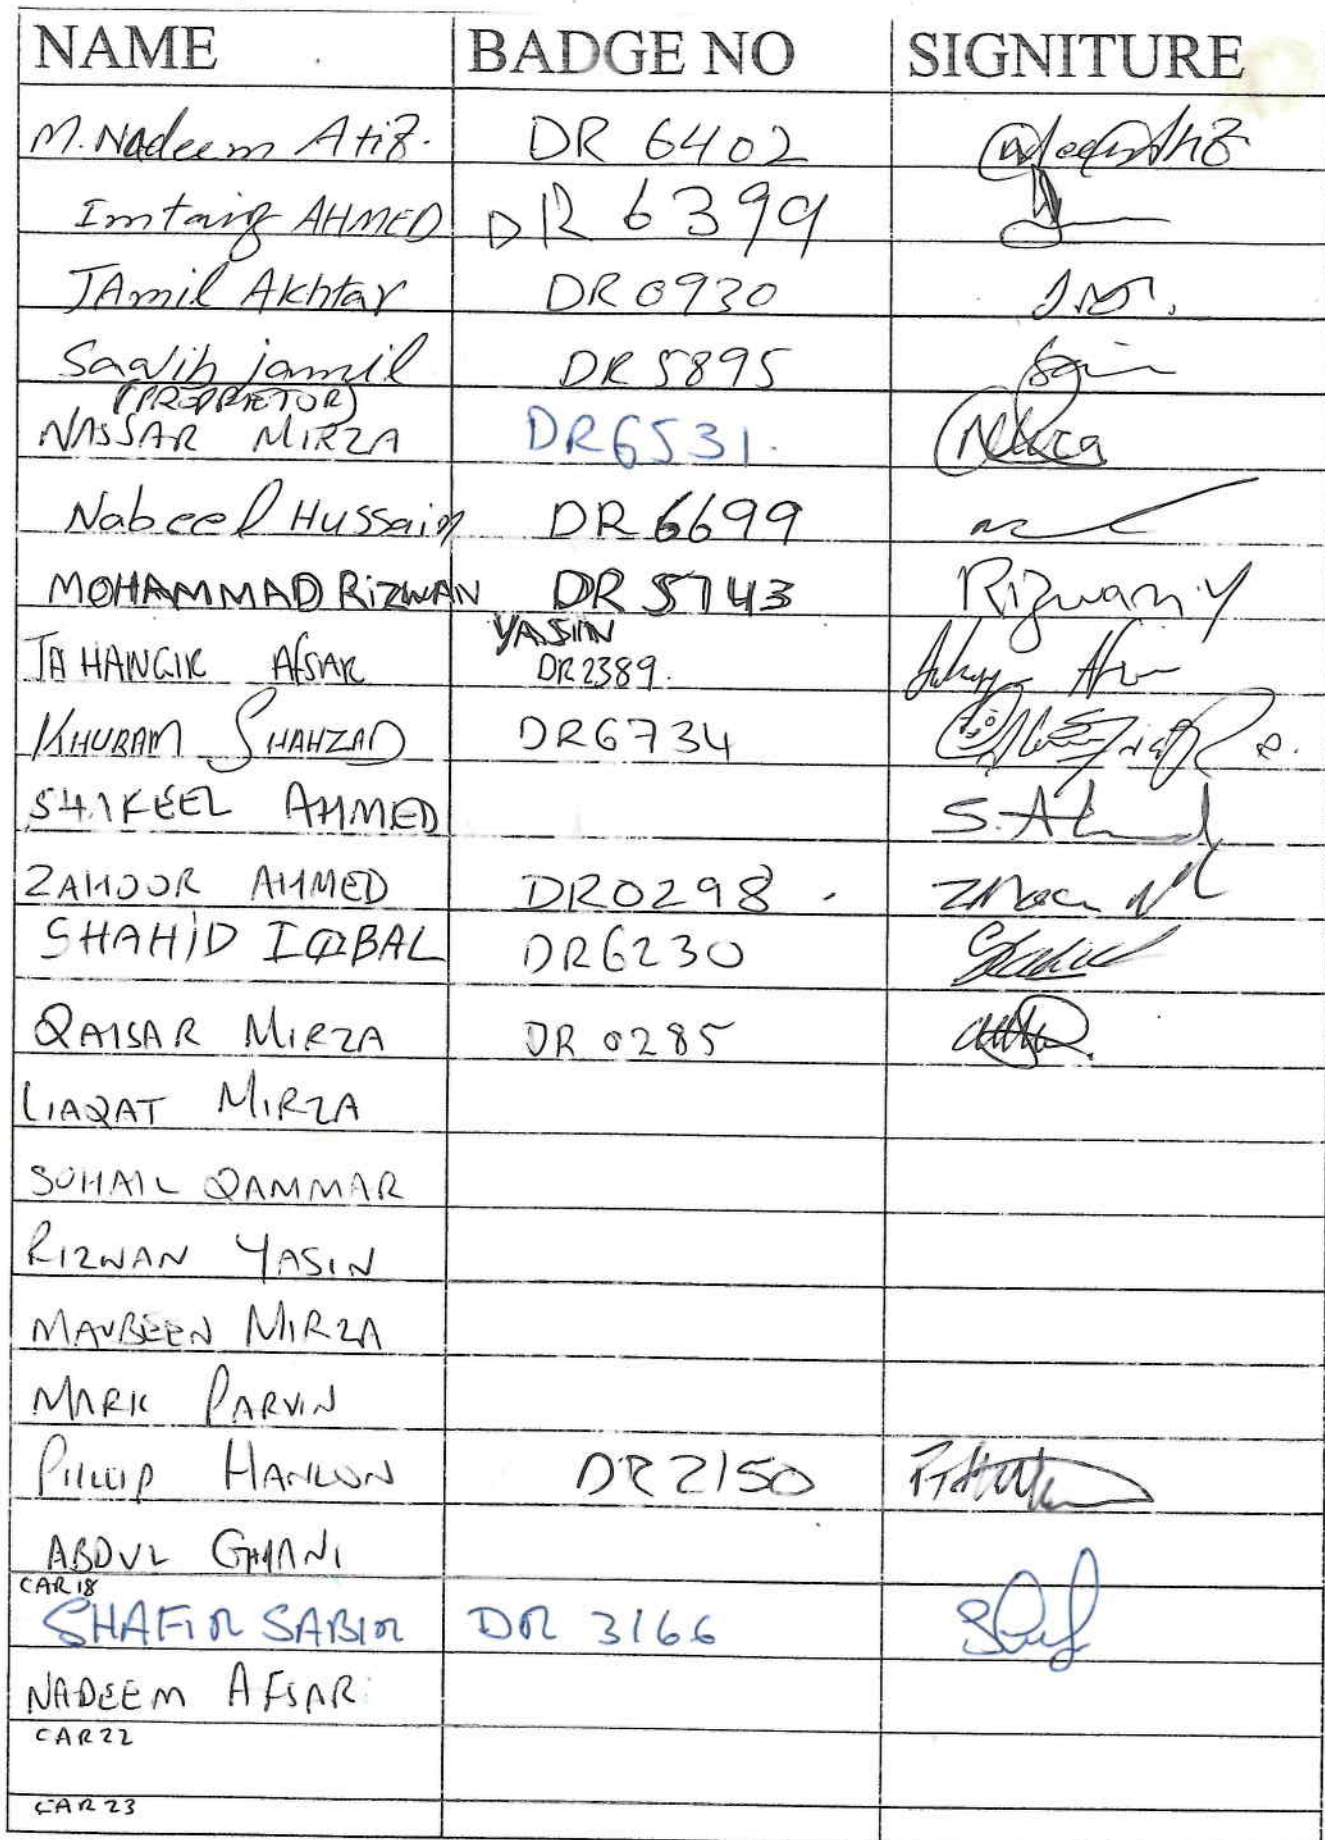 NAME BADGE NO SIGNITURE
M. Nadeem Atiz. DR 6402
Imtaiz AHMED DR 6399
JAmil Akhtar DR 0930
Saqib jamil DR 5895
(PROPRIETOR)
NASSAR MIRZA DR6531.
Nabeel Hussain DR 6699
MOHAMMAD RIZWAN DR 5743 Rizwan.Y
YASIN
JAHANGIR AFSAR DR2389.
KHURAM SHAHZAD DR6734
SHAKEEL AHMED S.Ahmed
ZAHOOR AHMED DR0298
SHAHID IQBAL DR6230
QAISAR MIRZA DR 0285
LIAQAT MIRZA
SOHAIL QAMMAR
RIZWAN YASIN
MAVBEEN MIRZA
MARK PARVIN
PILLIP HANLON DR2150
ABDUL GHANI
CAR18
SHAFIR SABIR DR 3166
NADEEM AFSAR
CAR22
CAR23